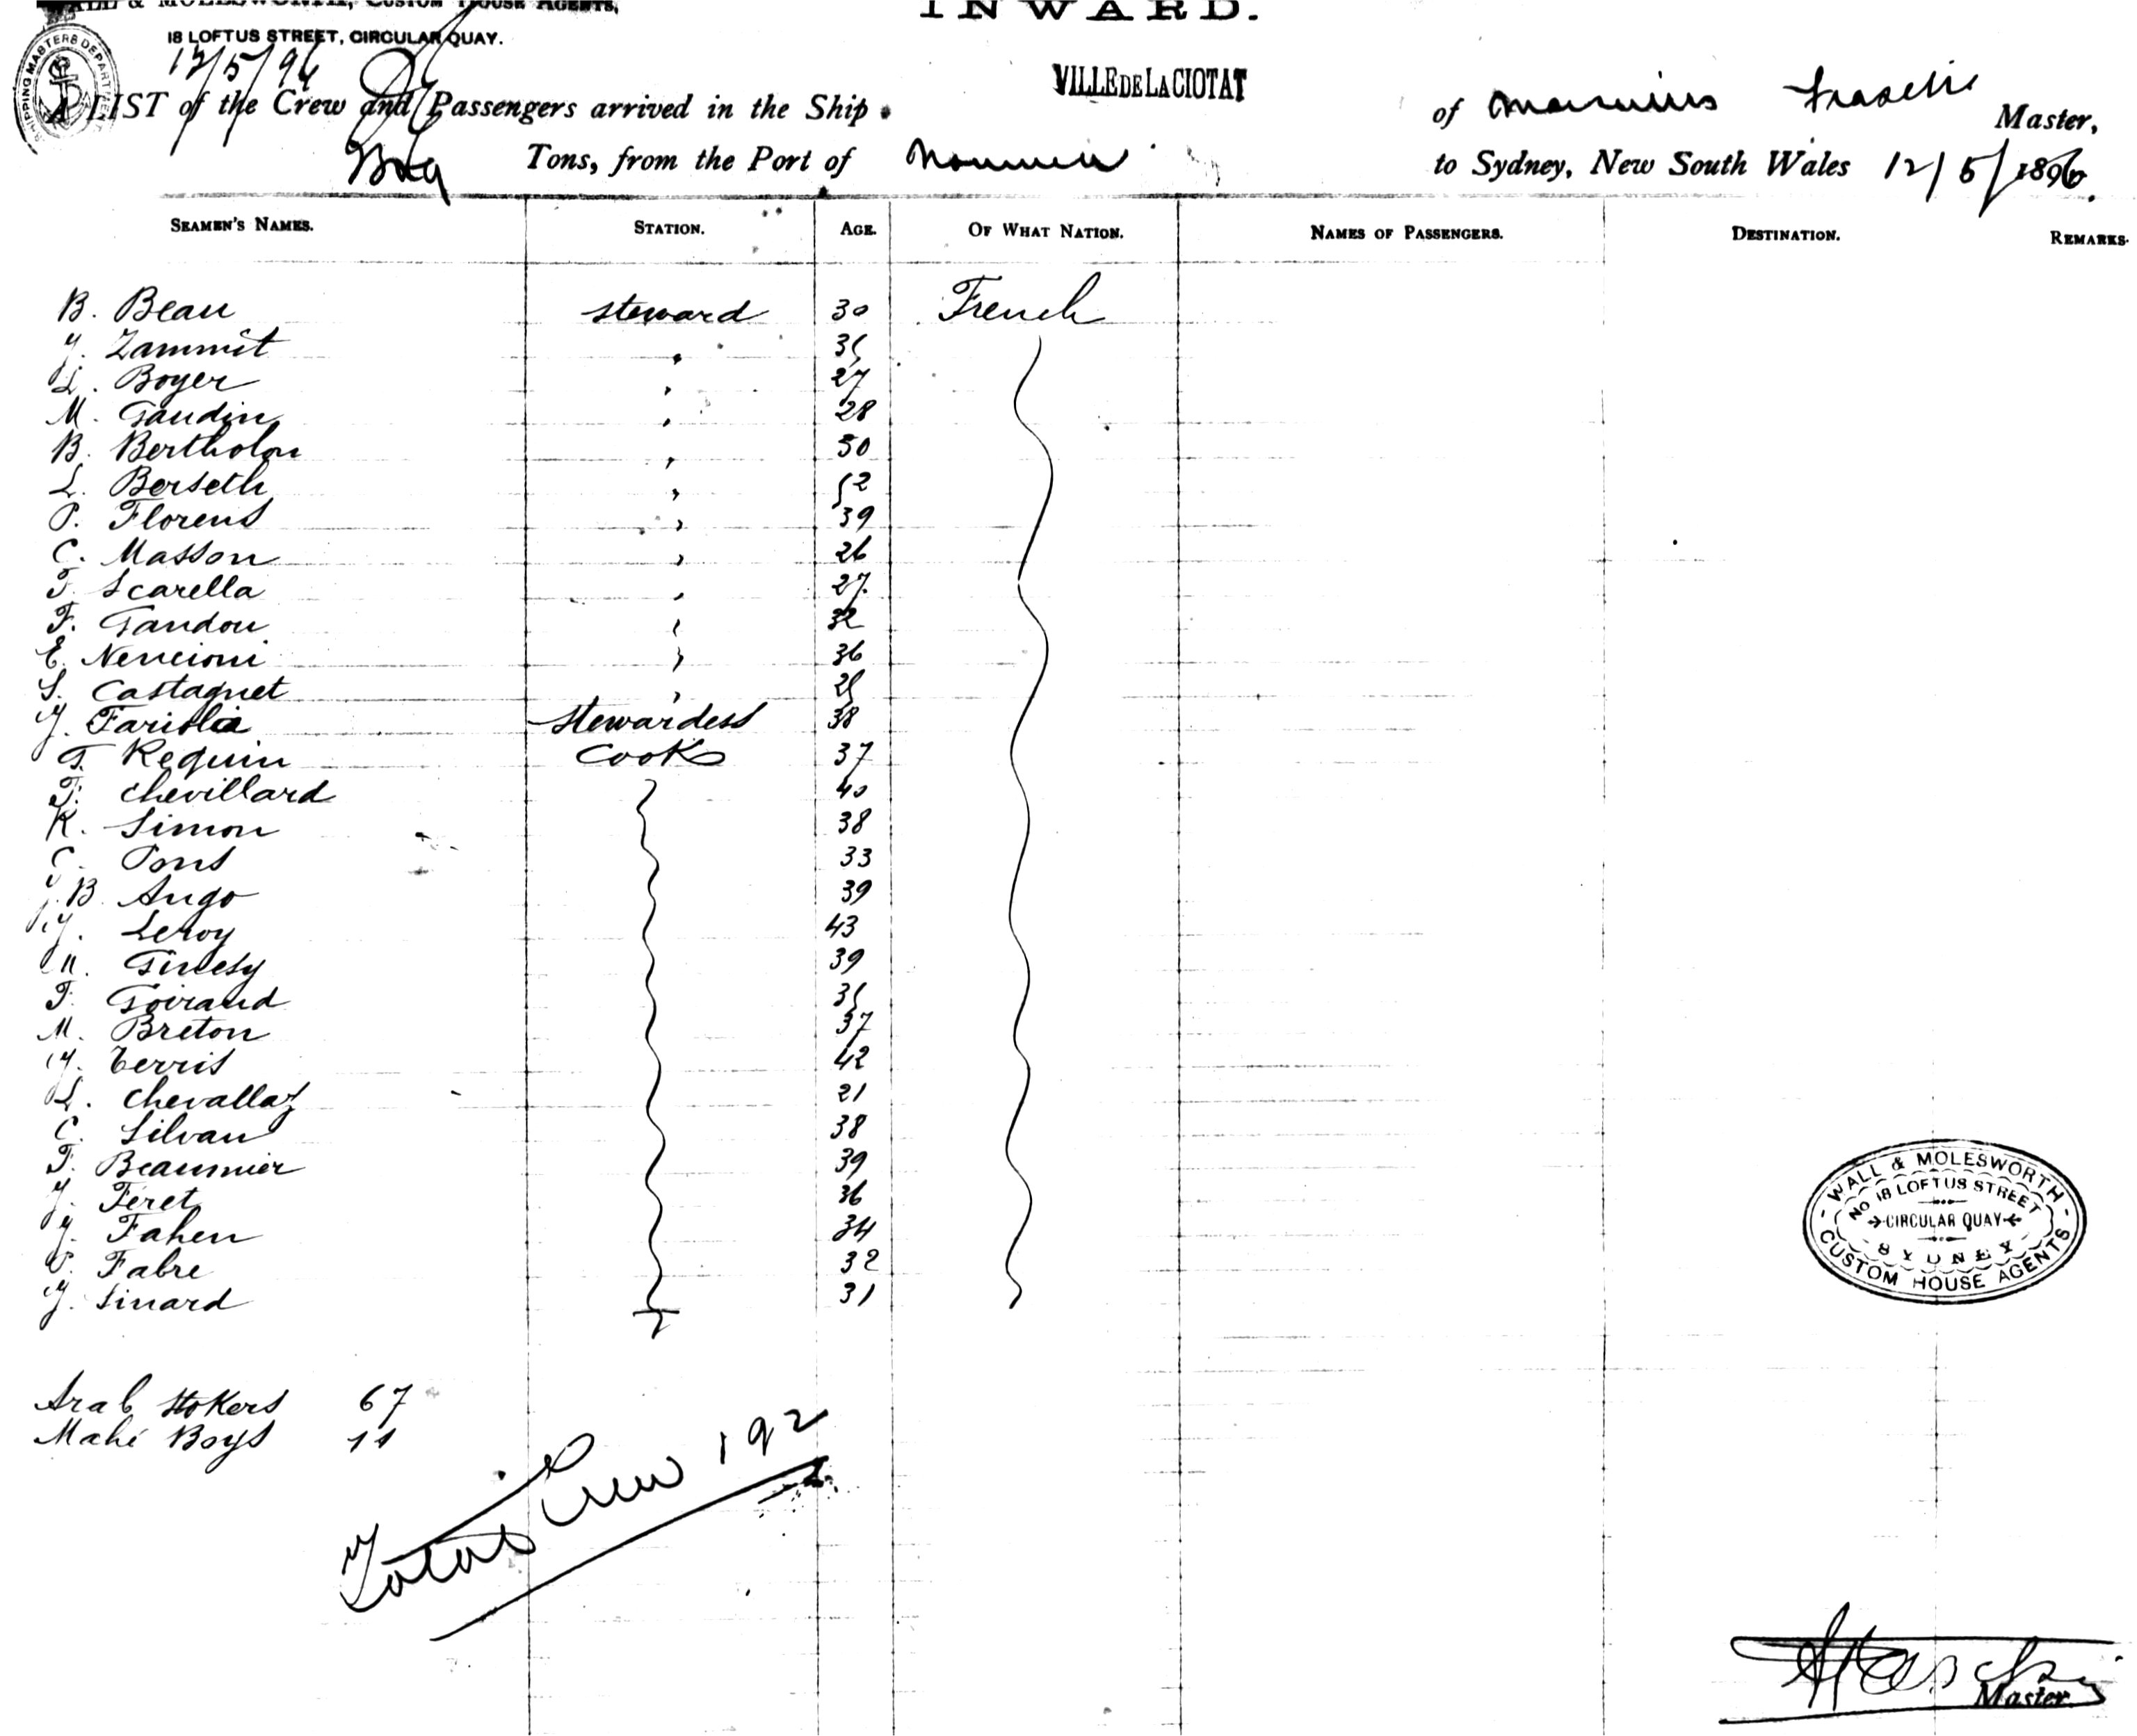 WALL & MOLESWORTH, CUSTOM HOUSE AGENTS,
18 LOFTUS STREET, CIRCULAR QUAY.
INWARD.
SHIPPING MASTERS DEPARTMENT
VILLE DE LA CIOTAT
A LIST of the Crew and Passengers arrived in the Ship of Master,
Tons, from the Port of Noumea to Sydney, New South Wales 12/5/1896.
SEAMEN'S NAMES. STATION. AGE. OF WHAT NATION. NAMES OF PASSENGERS. DESTINATION. REMARKS.
B. Beau steward 30 French
J. Zammit "
L. Boyer " 27
M. Gaudin " 28
B. Bertholon " 30
L. Berseth " 52
P. Florens " 39
C. Masson " 26
F. Scarella " 27
F. Gandou " 32
E. Nencioni " 36
S. Castagnet "
J. Fariolia stewardess 38
G. Requin Cook 37
F. Chevillard 40
K. Simon 38
C. Pons 33
J. B. Augo 39
J. Leroy 43
Ginesy 39
F. Goirand
M. Breton 37
J. Terris 42
L. Chevallaz 21
C. Silvan 38
F. Beaumier 39
J. Feret 36
J. Fahen 34
P. Fabre 32
J. Sinard 31
Arab Stokers 67
Mahé Boys 11
Total Crew 192
WALL & MOLESWORTH
No 18 LOFTUS STREET
CIRCULAR QUAY
SYDNEY
CUSTOM HOUSE AGENTS
Master